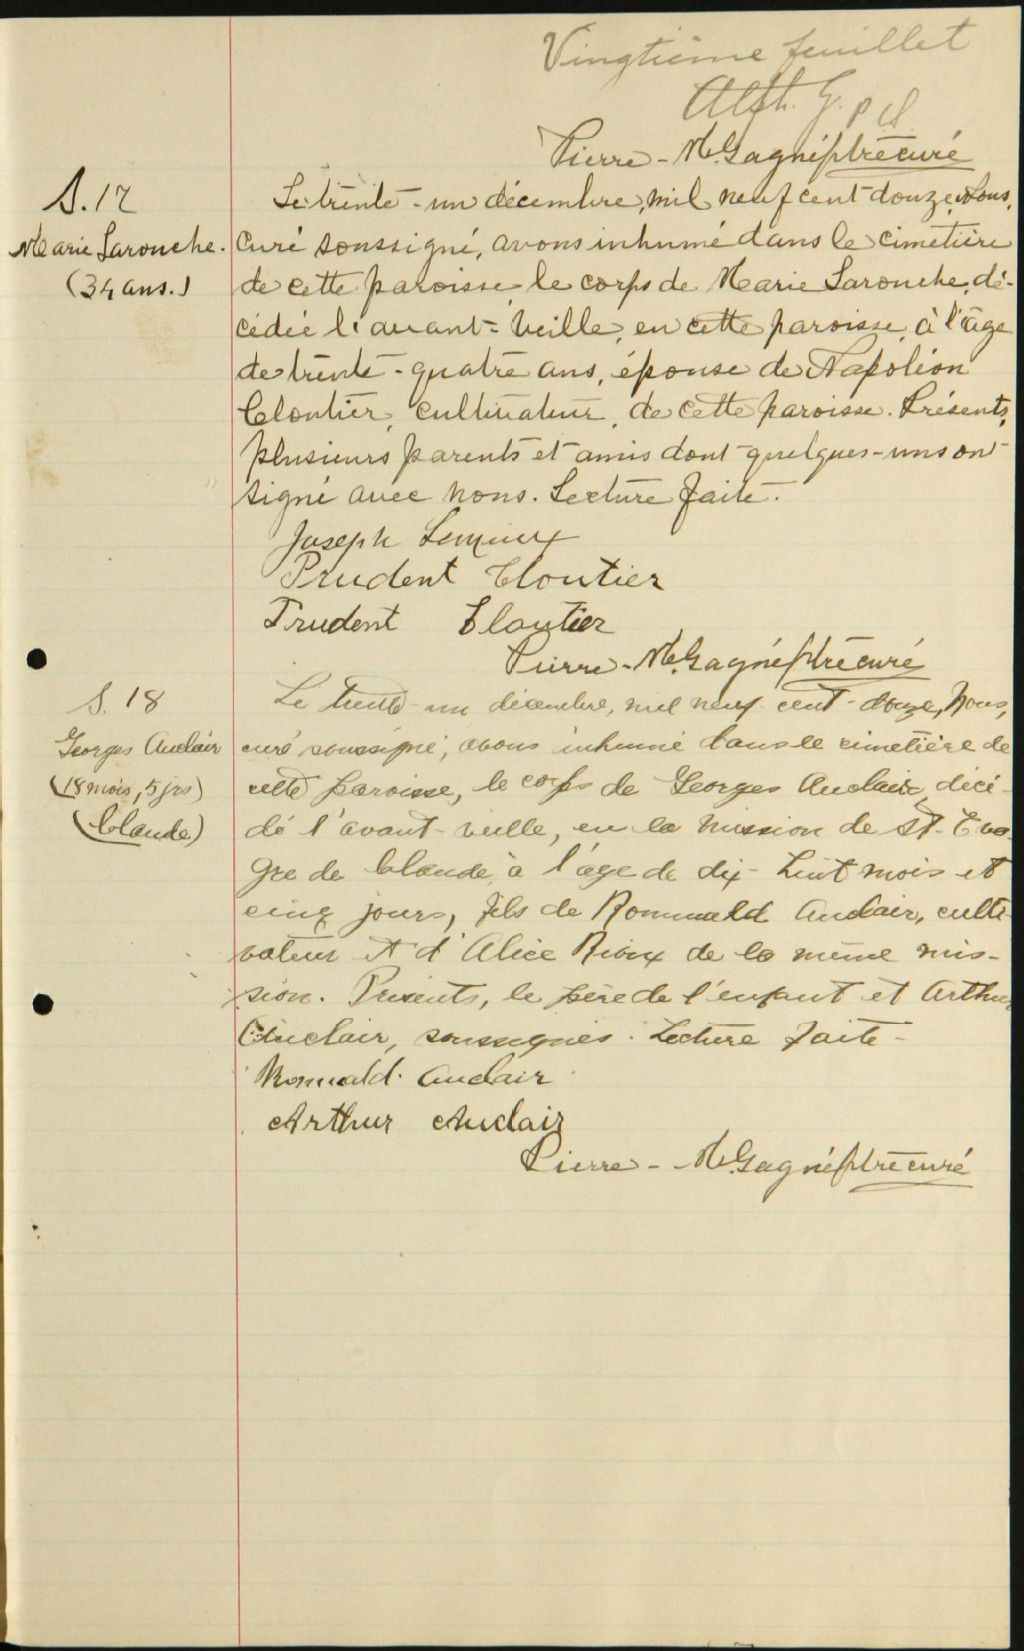 Vingtième feuillet
Alph. G. p d
Pierre-M. Gagné ptre curé
S. 17
Marie Larouche.
(34 ans.)
Le trente-un décembre, mil neuf cent douze, Nous,
curé soussigné, avons inhumé dans le cimetière
de cette paroisse le corps de Marie Larouche, dé-
cédée l'avant-veille, en cette paroisse, à l'âge
de trente-quatre ans, épouse de Napoléon
Cloutier, cultivateur, de cette paroisse. Présents,
plusieurs parents et amis dont quelques-uns ont
signé avec nous. Lecture faite.
Joseph Lemieux
Prudent Cloutier
Prudent Cloutier
Pierre-M. Gagné ptre curé
S. 18
Georges Auclair
(18 mois, 5 jrs)
(Claude)
Le trente-un décembre, mil neuf cent-douze, Nous,
curé soussigné, avons inhumé dans le cimetière de
cette paroisse, le corps de Georges Auclair, décé-
dé l'avant-veille, en la mission de St-Eva-
gre de Claude, à l'âge de dix-huit mois et
cinq jours, fils de Romuald Auclair, culti-
vateur et d'Alice Rioux de la même mis-
sion. Présents, le père de l'enfant et Arthur
Auclair, soussignés. Lecture faite-
Romuald Auclair
Arthur Auclair
Pierre-M. Gagné ptre curé